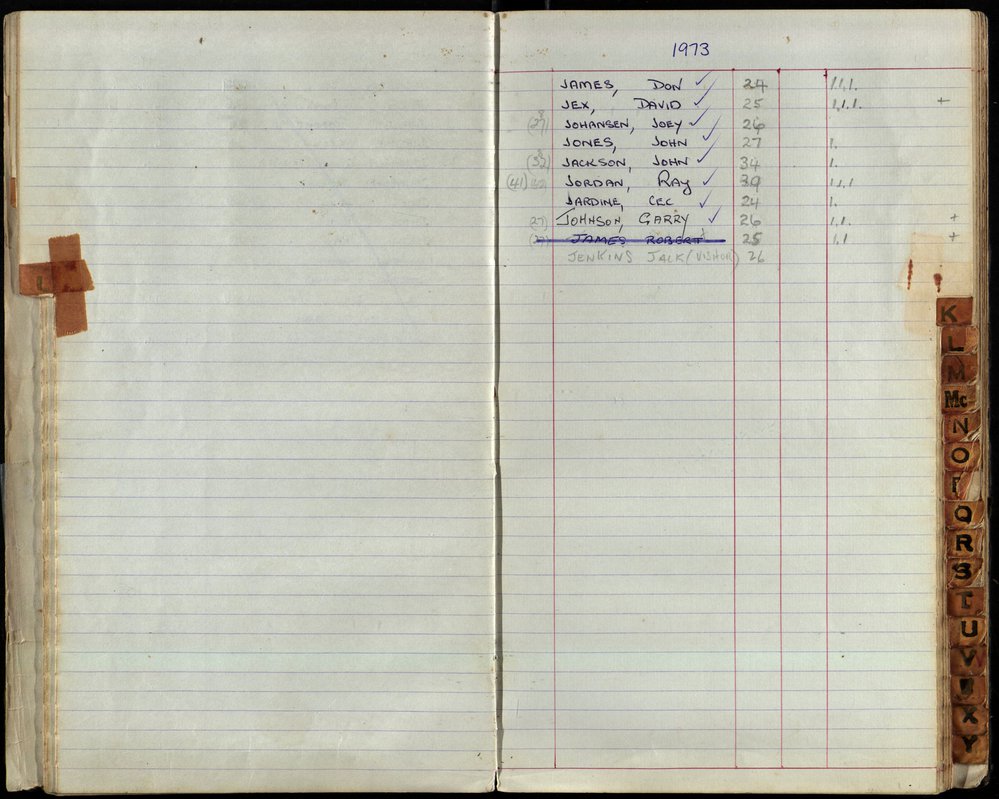 1973
JAMES, DON ✓ 24 1.1.1.
JEX, DAVID ✓ 25 1.1.1. +
(27) JOHANSEN, JOEY ✓ 26
JONES, JOHN ✓ 27 1.
JACKSON, JOHN ✓ 34 1.
(41) JORDAN, RAY ✓ 39 1.1.1
JARDINE, CEC ✓ 24 1.
(27) JOHNSON, GARRY ✓ 26 1.1. +
JAMES ROBERT 25 1.1 +
JENKINS JACK (VISITOR) 26
K
L
M
Mc
N
O
P
Q
R
S
T
U
V
X
Y